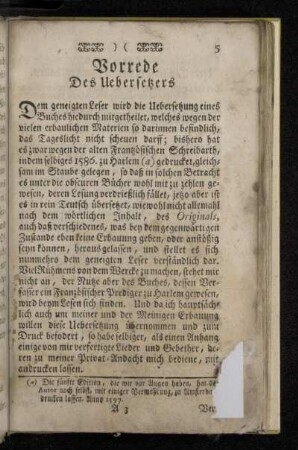 )( 5
Vorrede
Des Uebersetzers
Dem geneigten Leser wird die Uebersetzung eines
Buches hiedurch mitgetheilet, welches wegen der
vielen erbaulichen Materien so darinnen befindlich,
das Tageslicht nicht scheuen darff; bishero hat
es zwar wegen der alten Frantzösischen Schreibarth,
in dem selbiges 1586. zu Harlem (a) gedrucket, gleich-
sam im Staube gelegen, so daß in solchen Betracht
es unter die obscuren Bücher wohl mit zu zehlen ge-
wesen, deren Lesung verdrießlich fället, jetzo aber ist
es in rein Teutsch übersetzet, wiewohl nicht allemahl
nach dem wörtlichen Inhalt, des Originals,
auch daß verschiedenes, was bey dem gegenwärtigen
Zustande eben keine Erbauung geben, oder anstößig
seyn können, herausgelassen, und stellet es sich
nunmehro dem geneigten Leser verständlich dar.
Viel Rühmens von dem Wercke zu machen, stehet mir
nicht an, der Nutze aber des Buches, dessen Ver-
fasser ein Französischer Prediger zu Harlem gewesen,
wird beym Lesen sich finden. Und da ich hauptsäch-
lich auch um meiner und der Meinigen Erbauung
willen diese Uebersetzung übernommen und zum
Druck befodert, so habe selbiger, als einen Anhang
einige von mir verfertigte Lieder und Gebether, de-
ren zu meiner Privat-Andacht mich bediene, mit
andrucken lassen.
(a) Die fünfte Edition, die wir vor Augen haben, hat der
Autor noch selbst, mit einiger Vermehrung, zu Amsterda
drucken lassen. Anno 1597.
A 3 Ver-